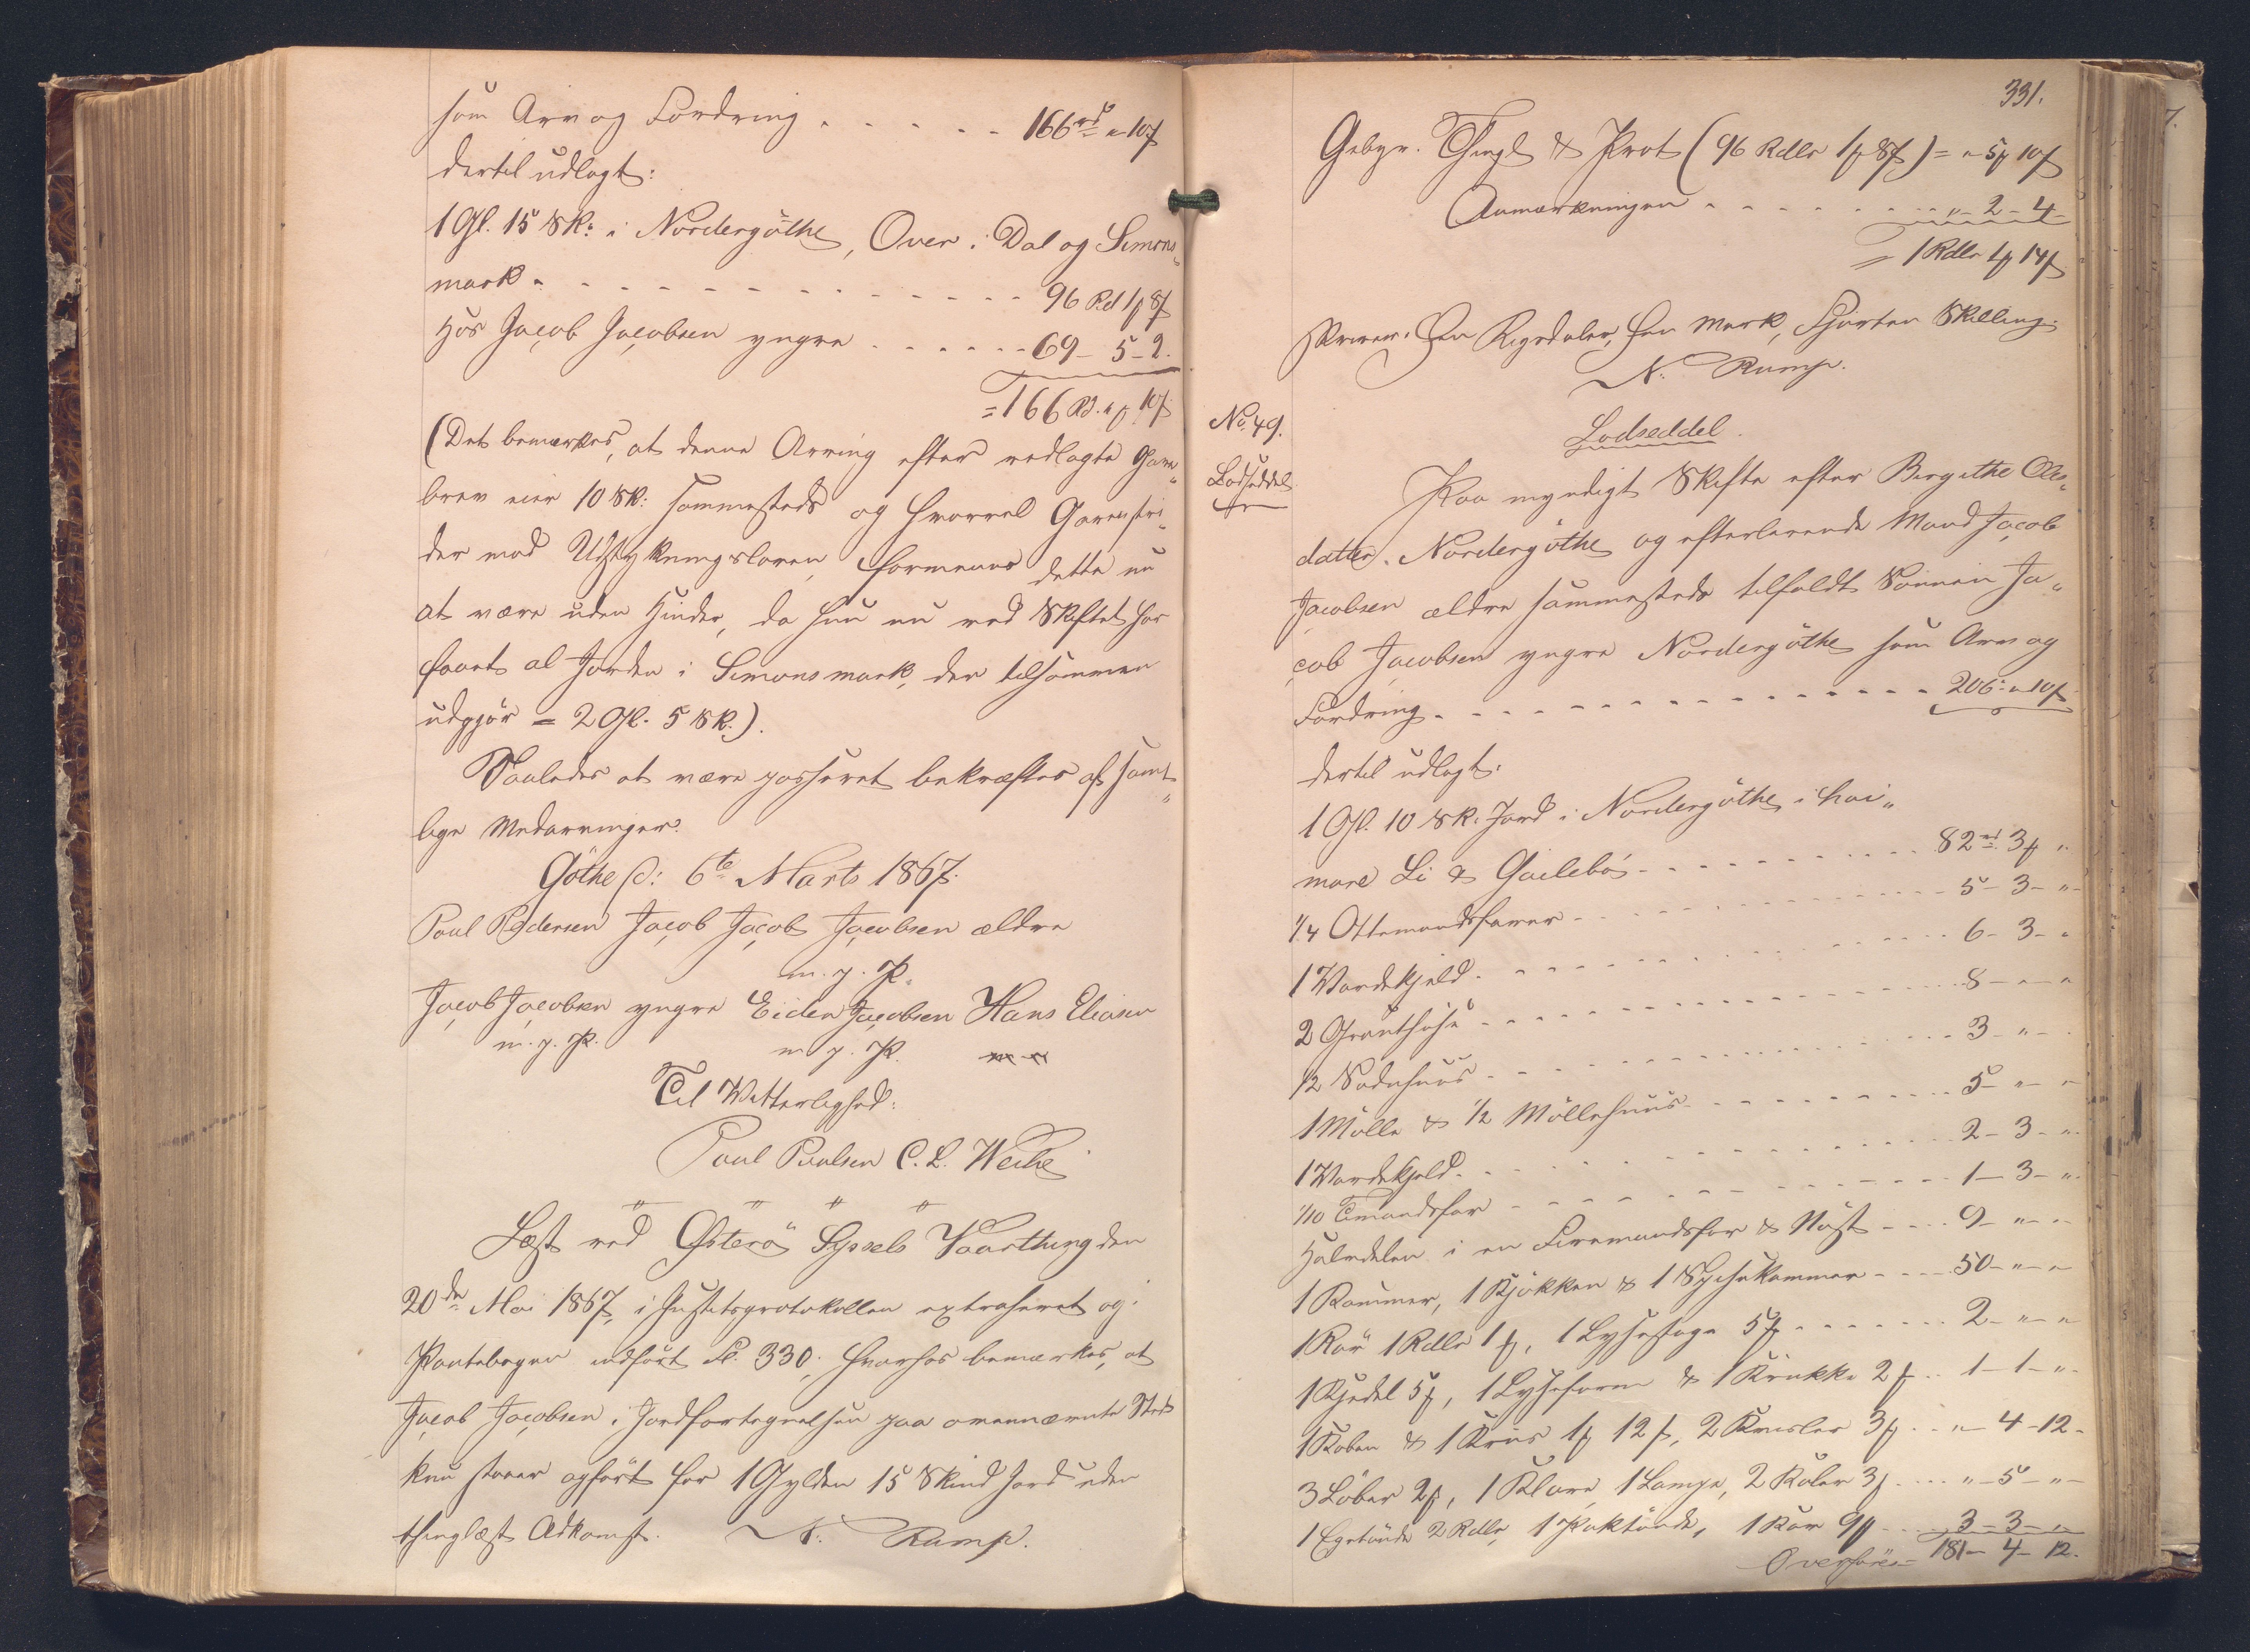 som Arv og Fordring . . . . . 166 rd „ 10 ß
dertil udlagt:
1 Gl. 15 Sk: i Nordergöthe, Over i Dal og Simons„
mark . . . . . . . . . . . 96 Rd 1 ꝟ 8 ß
Hos Jacob Jacobsen yngre . . . . . . 69 – 5 – 2.
= 166 Rd. „ ꝟ 10 ß
(Det bemærkes, at denne Arving efter vedlagte Gave„
brev eier 10 Sk: sammesteds og hvorvel Gaven stri„
der mod Udstykningsloven, formenes dette nu
at være uden Hinder, da hun nu ved Skiftet har
faaet al Jorden i Simonsmark, der tilsammen
udgjör = 2 Gl. 5 Sk.).
Saaledes at være passeret bekræftes af samt„
lige Medarvinger.
Göthe d: 6te Marts 1867.
Poul Pedersen Jacob Jacob Jacobsen ældre
m. p. P.
Jacob Jacobsen yngre Eiden Jacobsen Hans Eliasen
m. p. P. m. p. P.
Til Vitterlighed:
Poul Poulsen C. L. Weihe
„ „ „ „
Læst ved Österö Syssels Vaarthing den
20de Mai 1867, i Justitsprotokollen extraheret og i
Pantebogen indfört Fl. 330; hvorhos bemærkes, at
Jacob Jacobsen i Jordfortegnelsen paa ovennævnte Sted
kun staaer opfört for 1 Gylden 15 Skind Jord uden
thinglæst Adkomst. N. Rump.
331.
Gebyr. Thingl. & Prot (96 Rdlr 1 ꝟ 8 ß) = „ 5 ꝟ 10 ß
Anmærkningen . . . . . . . „ – 2 – 4 –
= 1 Rdlr 1 ꝟ 14 ß
skriver: Een Rigsdaler, Een Mark, Fjorten Skilling.
N. Rump.
No. 49.
Lodseddel
Lodseddel.
Paa myndigt Skifte efter Birgithe Ols„
datter. Nordergöthe og efterlevende Mand Jacob
Jacobsen ældre sammesteds tilfaldt Sönnen Ja„
cob Jacobsen yngre Nordergöthe som Arv og
Fordring . . . . . . . . . . . 206 „ 10 ß
dertil udlagt:
1 Gl. 10 Sk. Jord i Nordergöthe i hei„
mare Li & Gailebö . . . . . . . . 82 rd. 3 ꝟ „
1/4 Ottemandsfarer . . . . . . . . 5 – 3 – „ –
1 Vardekjeld . . . . . . . . . 6 – 3 – „
2 Grunthuse . . . . . . . . . . 8 – „ – „
1/2 Sodnhuus . . . . . . . . . . 3 – „ – „
1 Mölle & 1/2 Möllehuus . . . . . . . . 5 – „ – „
1 Vardekjeld . . . . . . . . . . 2 – 3 – „
1/10 Timandsfar . . . . . . . . . 1 – 3 – „
Halvdelen i en Firemandsfar & Nöst . . . . 9 – „ – „
1 Kammer, 1 Kjökken & 1 Spisekammer . . . . 50 – „ – „
1 Kar 1 Rdlr 1 ꝟ, 1 Lysestage 5 ꝟ . . . . . . 2 – „ – „
1 Kjedel 5 ꝟ, 1 Lyseform & 1 Krukke 2 ꝟ . . 1 – 1 – „
1 Kobbe & 1 Kruus 1 ꝟ 12 ß, 2 Knusler 3 ꝟ . . „ – 4 – 12 –
3 Löber 2 ꝟ, 1 Klave, 1 Lampe, 2 Koler 3 ꝟ . . . „ – 5 – „ –
1 Egetönde 2 Rdlr, 1 Paktönde, 1 Kar 9 ꝟ . . . 3 – 3 – „
Overföres = 181 – 4 – 12.